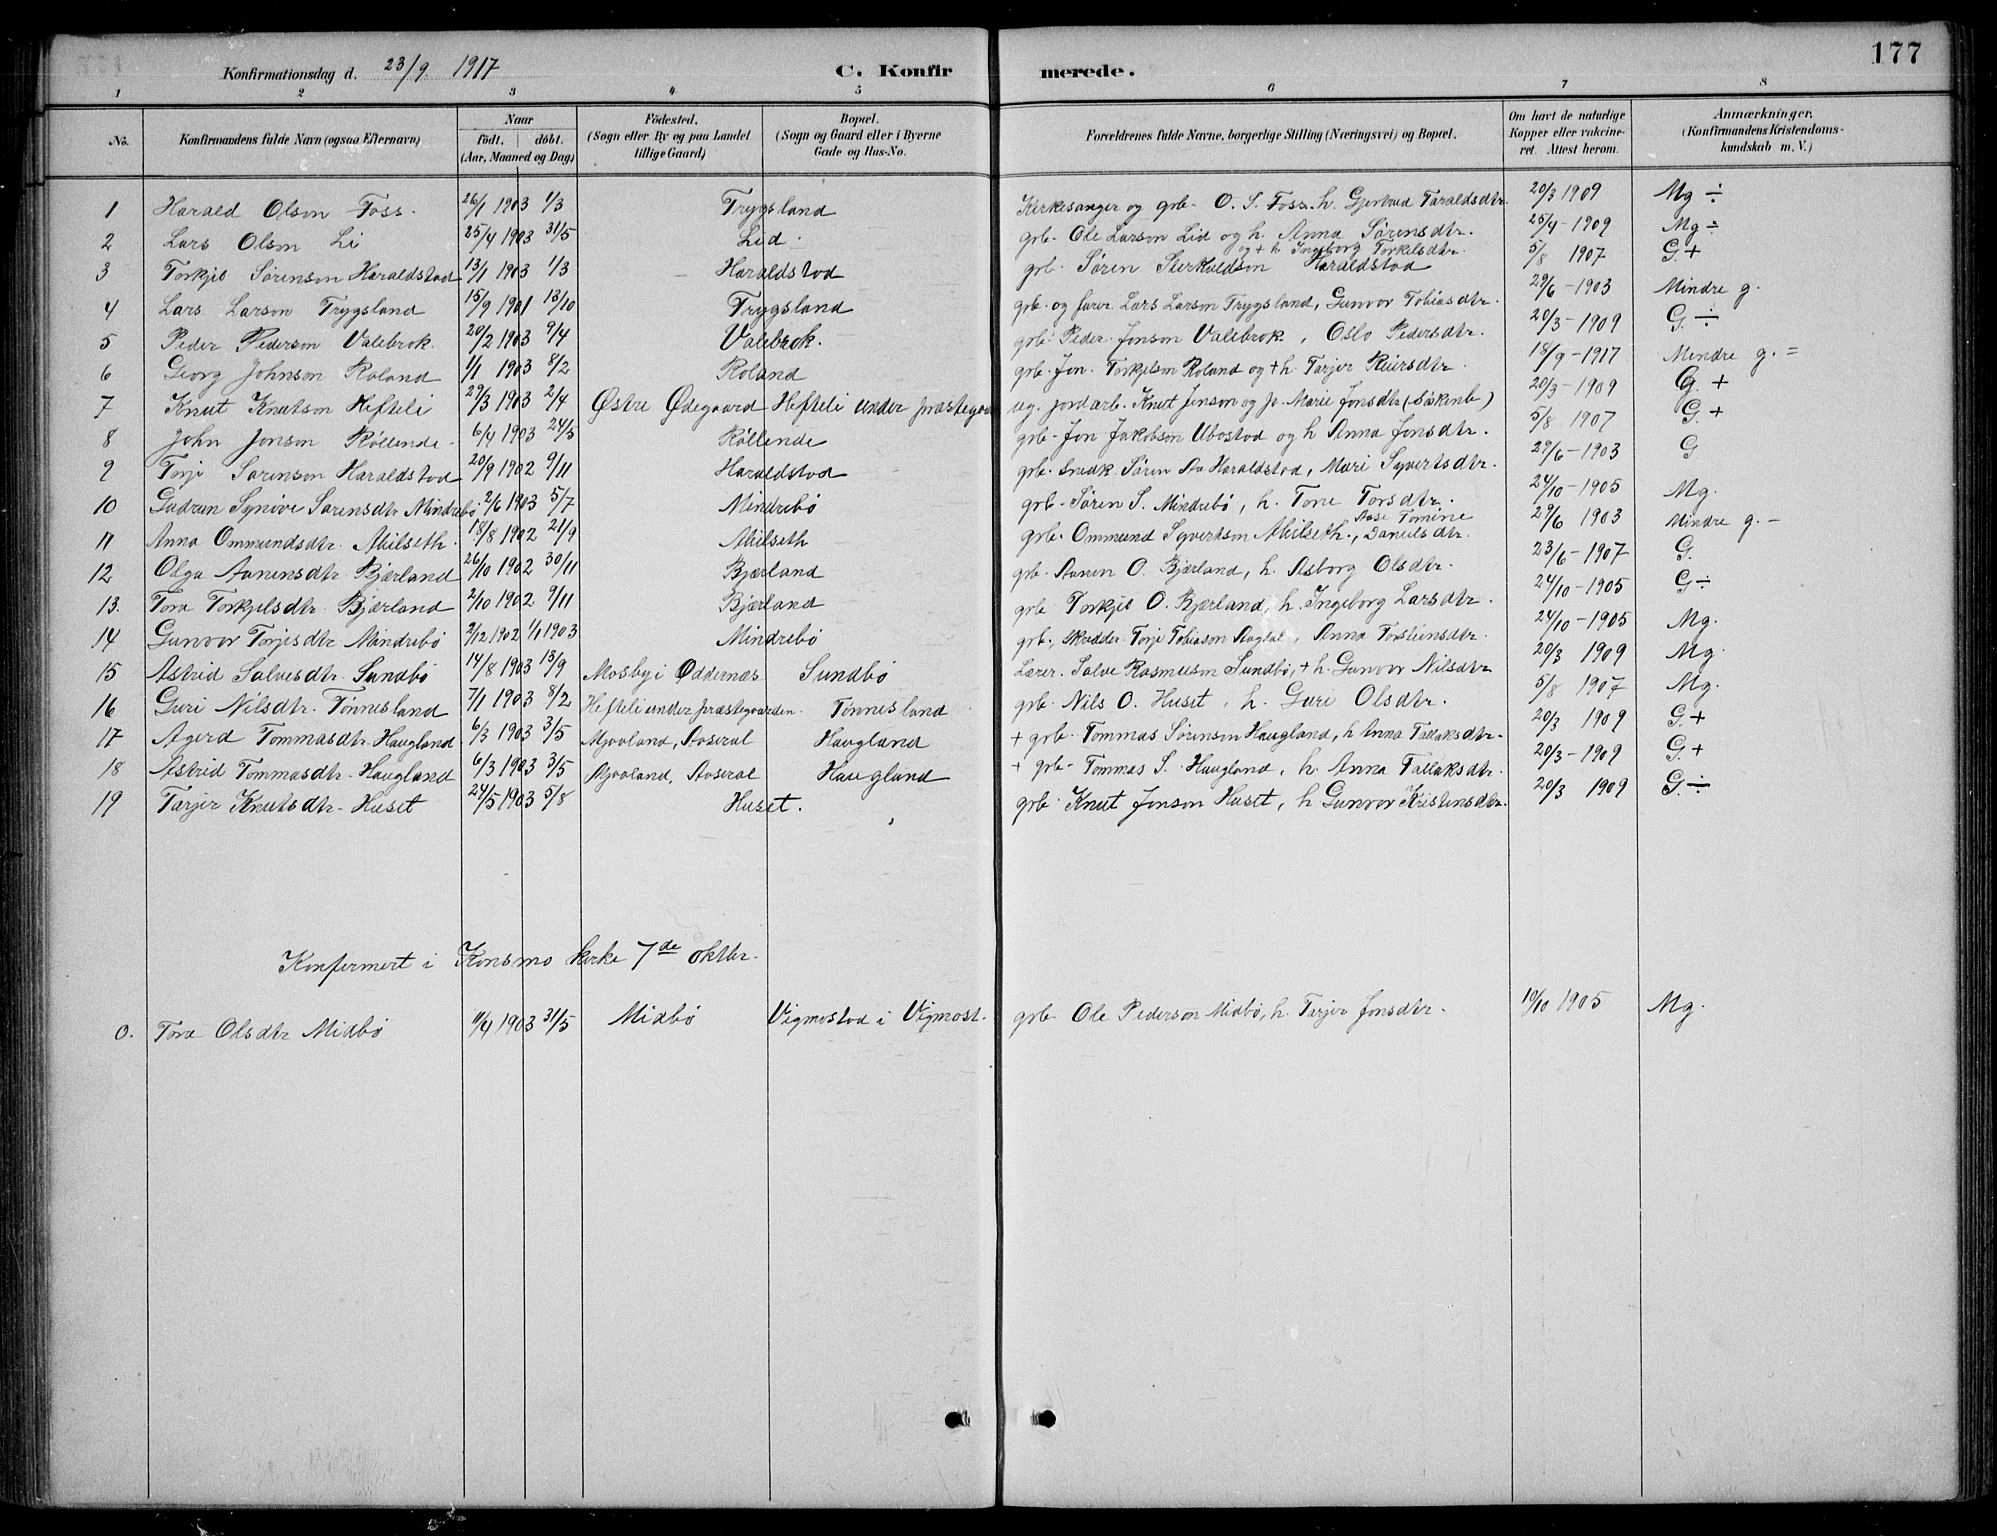 177
Konfirmationsdag d. 23/9 1917 C. Konfirmerede.
1 2 3 4 5 6 7 8
No. Konfirmandens fulde Navn (ogsaa Efternavn) Naar födt. döbt. (Aar, Maaned og Dag) Födested. (Sogn eller By og paa Landet tillige Gaard) Bopæl. (Sogn og Gaard eller i Byerne Gade og Hus-No. Forældrenes fulde Navne, borgerlige Stilling (Næringsvei) og Bopæl. Om havt de naturlige Kopper eller vakcineret. Attest herom. Anmærkninger. (Konfirmandens Kristendomskundskab m. V.)
1 Harald Olson Foss. 26/1 1903 1/3 Trygsland Kirkesanger og grb. O. S. Foss. h. Gjertrud Taraldsdtr. 20/3 1909 Mg ÷
2 Lars Olson Li 25/4 1903 31/5 Lid. grb. Ole Larson Lid og h. Anna Sørensdtr. 25/4 - 1909 Mg ÷
3 Torkjel Sørenson Haraldstad 13/1 1903 1/3 Haraldstad grb. Søren Sterkuldson Haraldstad og + h. Ingeborg Torkelsdtr. 5/8 1907 G. +
4 Lars Larson Trygsland 15/9 1901 13/10 Trygsland grb. og fører. Lars Larson Trygsland, Gunvor Tobiasdtr. 29/6 - 1903 Mindre g.
5 Peder Pederson Valebrok. 20/2 1903 9/4 Valebrok. grb. Peder Jonson Valebrok, Oslo Pedersdtr. 20/3 - 1909 G. ÷
6 Georg Johnson Roland 1/1 1903 8/2 Roland grb. Jon Torkjelson Roland og + h. Tarjer Reiersdtr. 18/9 - 1917 Mindre g. =
7 Knut Knutson Hefteli 29/3 1903 2/4 Østre Ødegaard Hefteli under præstegaa ug. jordarb. Knut Jenson og p. Marie Jonsdtr 20/3 - 1909 G. +
8 John Jonson Røllende. 6/4 1903 24/5 Røllende grb. Jon Jakobson Ubostad og h Anna Jonsdtr. 5/8 1907 G. +
9 Torje Sørenson Haraldstad 20/9 1902 9/11 Haraldstad grb. Søren Haraldstad, Mari Syvertsdtr. 29/6 - 1903 G
10 Gudrun Synöve Sørensdtr Mindrebö 2/6 1903 5/7 Mindrebö grb. Søren S. Mindrebö, h. Tone Torsdtr. 24/10 - 1905 Mg.
11 Anna Ommundsdtr. Meilseth. 18/8 1902 21/9 Meilseth grb. Ommund Syvertson Meilseth, Aase Tomine Danielsdtr. 29/6 1903 Mindre g. -
12 Olga Aanensdtr. Bjærland 26/10 1902 30/11 Bjærland grb. Aanen O. Bjærland, h. Asborg Olsdtr. 23/6 - 1907 G.
13. Tora Torkjelsdtr. Bjærland 2/10 1902 9/11 Bjærland grb. Torkjel O. Bjærland, h. Ingeborg Larsdtr. 24/10 - 1905 G ÷
14 Gunvor Torjesdtr. Mindrebö 2/12 1902 1/1 1903 Mindrebö grb., skrædder Torje Tobiason, Anna Torsteinsdtr. 24/10 - 1905 Mg.
15 Astrid Salvesdtr. Sundbö 14/8 1903 13/9 Mosby i Oddernæs Sundbö Lærer. Salve Rasmusson Sundbö, + h. Gunvor Nilsdtr 20/3 1909 Mg.
16 Guri Nilsdtr. Tönnesland 7/1 1903 8/2 Hefteli under præstegaarden. Tönnesland grb. Nils O. Huset, h. Guri Olsdtr. 5/8 1907 Mg.
17 Agerd Tommasdtr. Haugland 6/3 1903 3/5 Mjaaland, Aaseral Haugland + grb. Tommas Sörenson Haugland, h Anna Tallaksdtr. 20/3 1909 G. +
18 Astrid Tommasdtr. Haugland 6/3 1903 3/5 Mjaaland, Aaseral Haugland + grb. Tommas S. Haugland, h. Anna Tallaksdtr. 20/3 - 1909 G. +
19 Tarjer Knutsdtr. Huset 24/5 1903 5/8 Huset. grb. Knut Jonson Huset, h Gunvor Kristensdtr. 20/3 1909 G. ÷
Konfermert i Konsmo kirke 7de oktbr.
0. Tora Olsdtr Midbö 11/4 1903 31/5 Midbö Vigmostad i Vigmost. grb. Ole Pederson Midbö, h. Tarjer Jonsdtr. 10/10 1905 Mg.